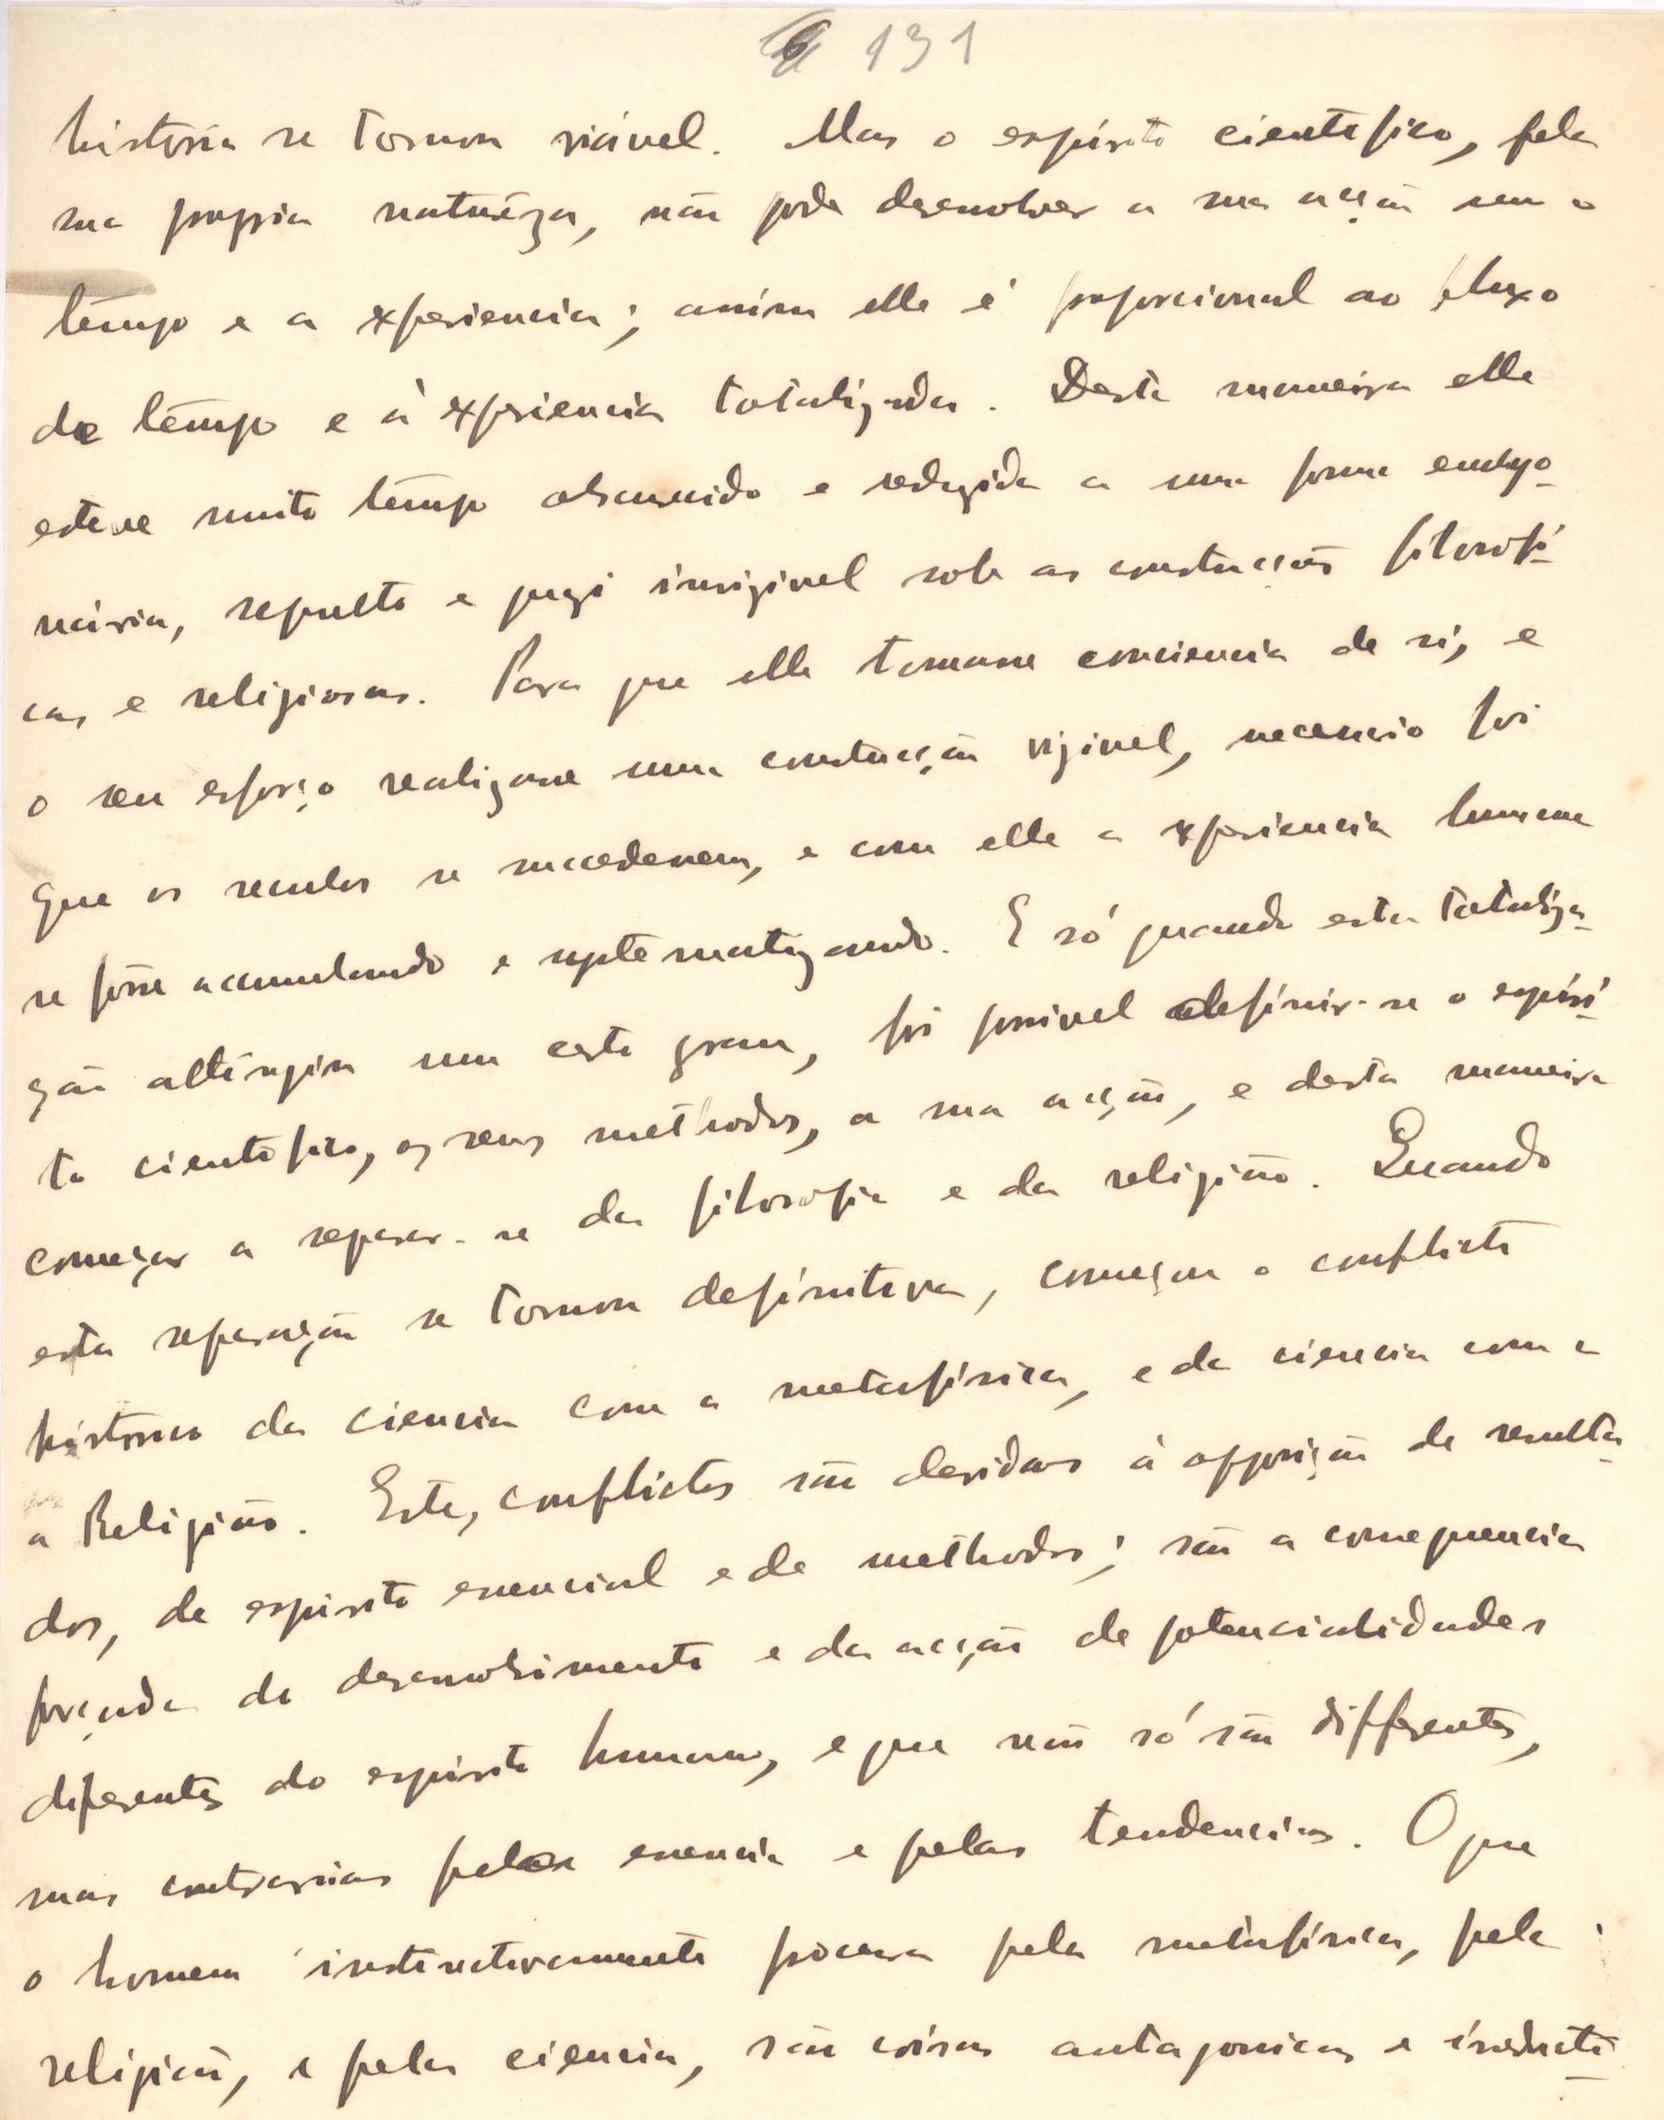 131
historia se tornou viável. Mas o espírito cientifico, pela
sua propria naturêza, não pode desenvolver a sua acção sem o
tempo e a experiencia; assim elle é proporcional ao fluxo
de tempo e á experiencia totalizada. Desta maneira elle
esteve muito tempo obscurecido e reduzido a uma forma embryo-
nária, sepulto e quazi invizivel sob as construcções filosófi-
cas e religiosas. Para que elle tomasse consciencia de si, e
o seu esforço realizasse uma construcção vizivel, necessario foi
que os seculos se succedessem, e com elle a experiencia humana
se fôsse accumulando e systematizando. E só quando esta totaliza-
ção attingiu um certo grau, foi possivel definir-se o espíri-
to cientifico, os seus methodos, a sua acção, e desta maneira
começar a separar-se da filosofia e da religião. Quando
esta separação se tornou definitiva, começou o conflicto
histórico da ciencia com a metafísica, e da ciencia com a
a Religião. Estes conflictos são devidos á opposição de resulta-
dos, de espirito essencial e de methodos; são a consequencia
forçada do desenvolvimento e da acção de potencialidades
diferentes do espírito humano, e que não só são differentes,
mas contrarias pela essencia e pelas tendencias. O que
o homem instinctivamente procura pela metafísica, pela
religião, e pela ciencia, são coisas antagonicas e irreducti-